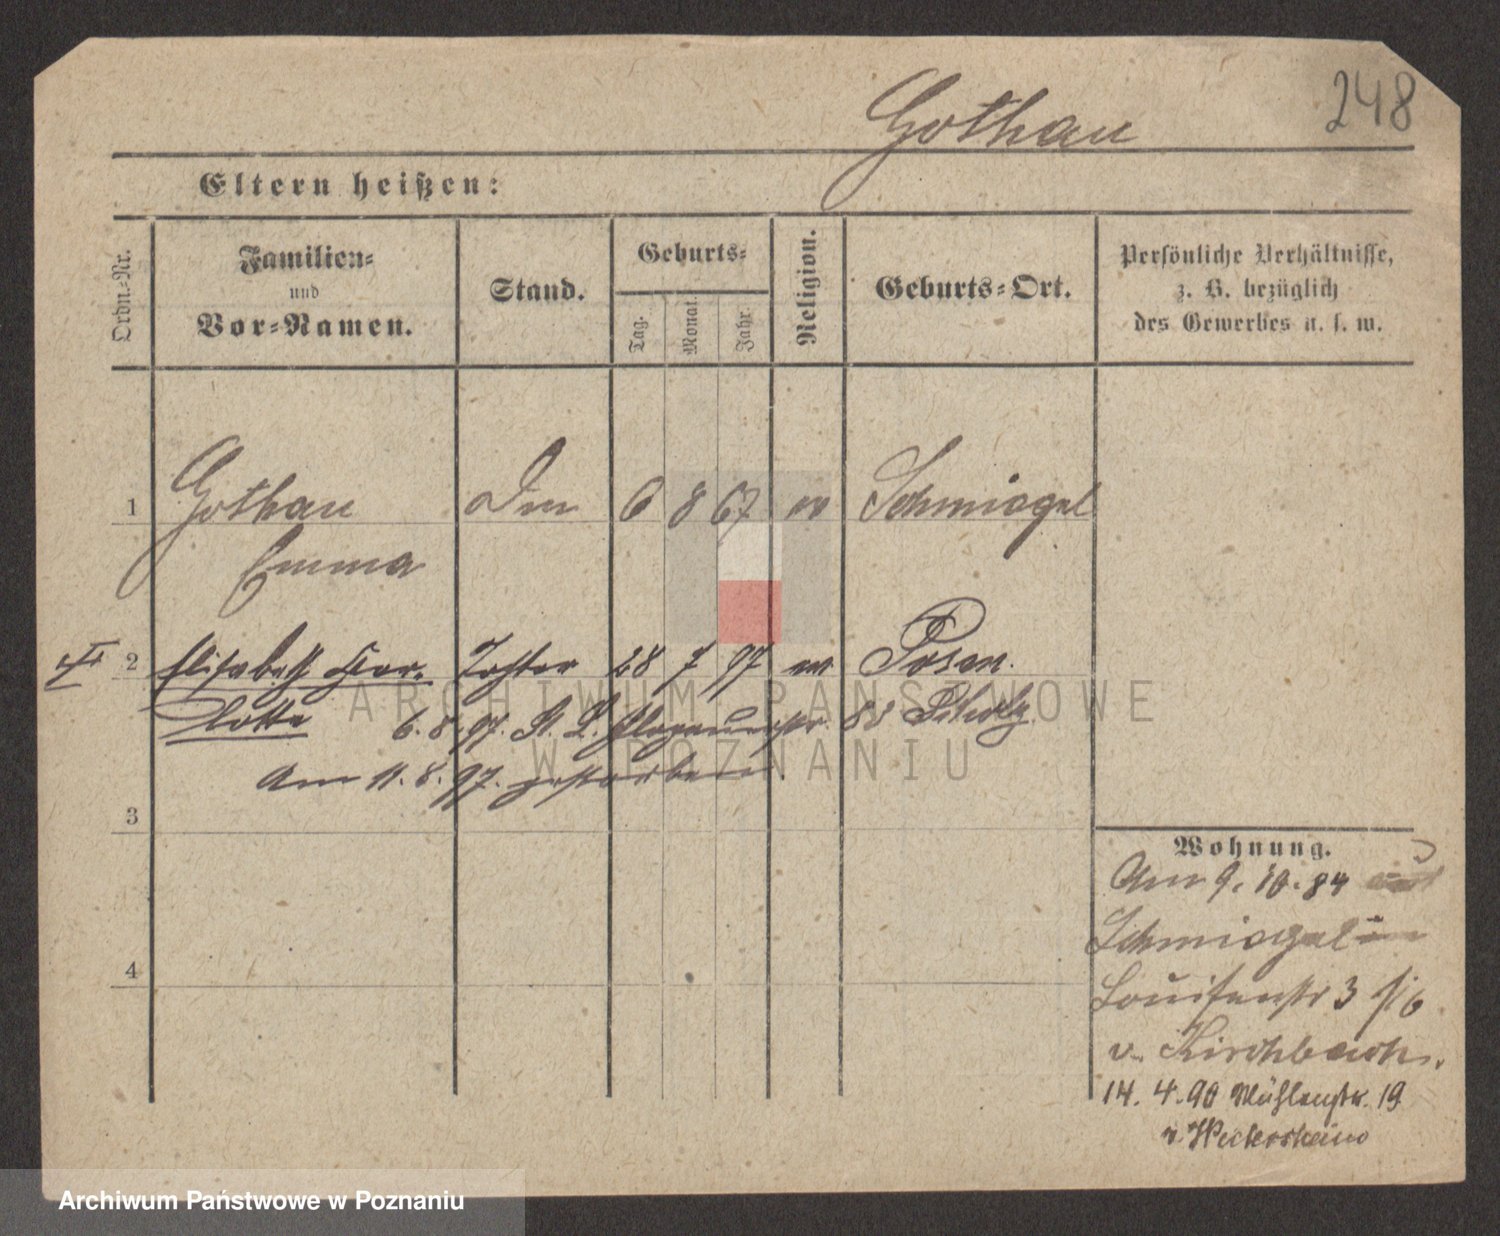 248
Gothau
Eltern heißen:
Ordn.-Nr.
Familien-
und
Vor-Namen.
Stand.
Geburts-
Tag.
Monat.
Jahr.
Religion.
Geburts-Ort.
Persönliche Verhältnisse,
z. B. bezüglich
des Gewerbes u. s. w.
1 Gothau 6 8 67 Schmiegel
Emma
2 Elisabeth Tochter 28 7 97 Posen.
Lotte 6.8.97. St. L. Glogauerstr. 88 Scholz
am 11.8.97. gestorben.
3
4
Wohnung.
Am 9.10.84
Schmiegel
Louisenstr 3
v. Kirchbach.
14.4.90 Mühlenstr. 19
ARCHIWUM PAŃSTWOWE
W POZNANIU
Archiwum Państwowe w Poznaniu